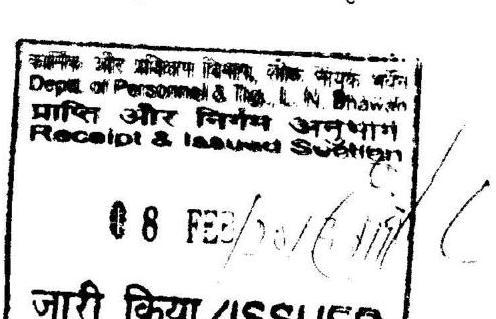 कार्मिक और प्रशिक्षण विभाग, लोक नायक भवन
Deptt. of Personnel & Trg., L. N. Bhawan
प्राप्ति और निर्गम अनुभाग
Receipt & Issued Section
08 FEB
जारी किया /ISSUED